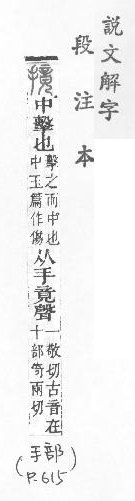 說文解字
段注本
中擊也
擊之而中也
中玉篇作傷
从手竟聲
一敬切古音在
十部兩切
(手部
P.615)